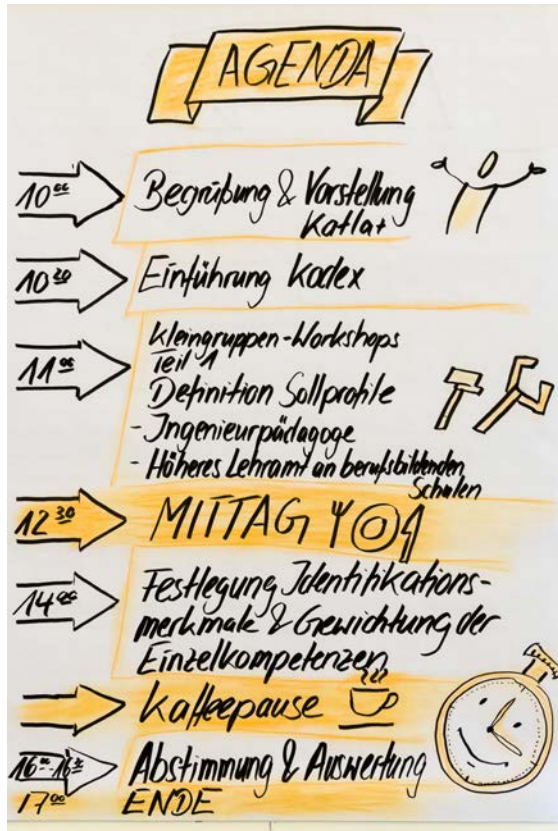 AGENDA
10⁰⁰ Begrüßung & Vorstellung
Katla+
10³⁰ Einführung Kodex
Kleingruppen-Workshops
Teil 1
11⁰⁰ Definition Sollprofile
- Ingenieurpädagoge
- Höheres Lehramt an berufsbildenden
Schulen
12³⁰ MITTAG
14⁰⁰ Festlegung Identifikations-
merkmale & Gewichtung der
Einzelkompetenzen
Kaffeepause
16⁰⁰-16³⁰ Abstimmung & Auswertung
17⁰⁰ ENDE